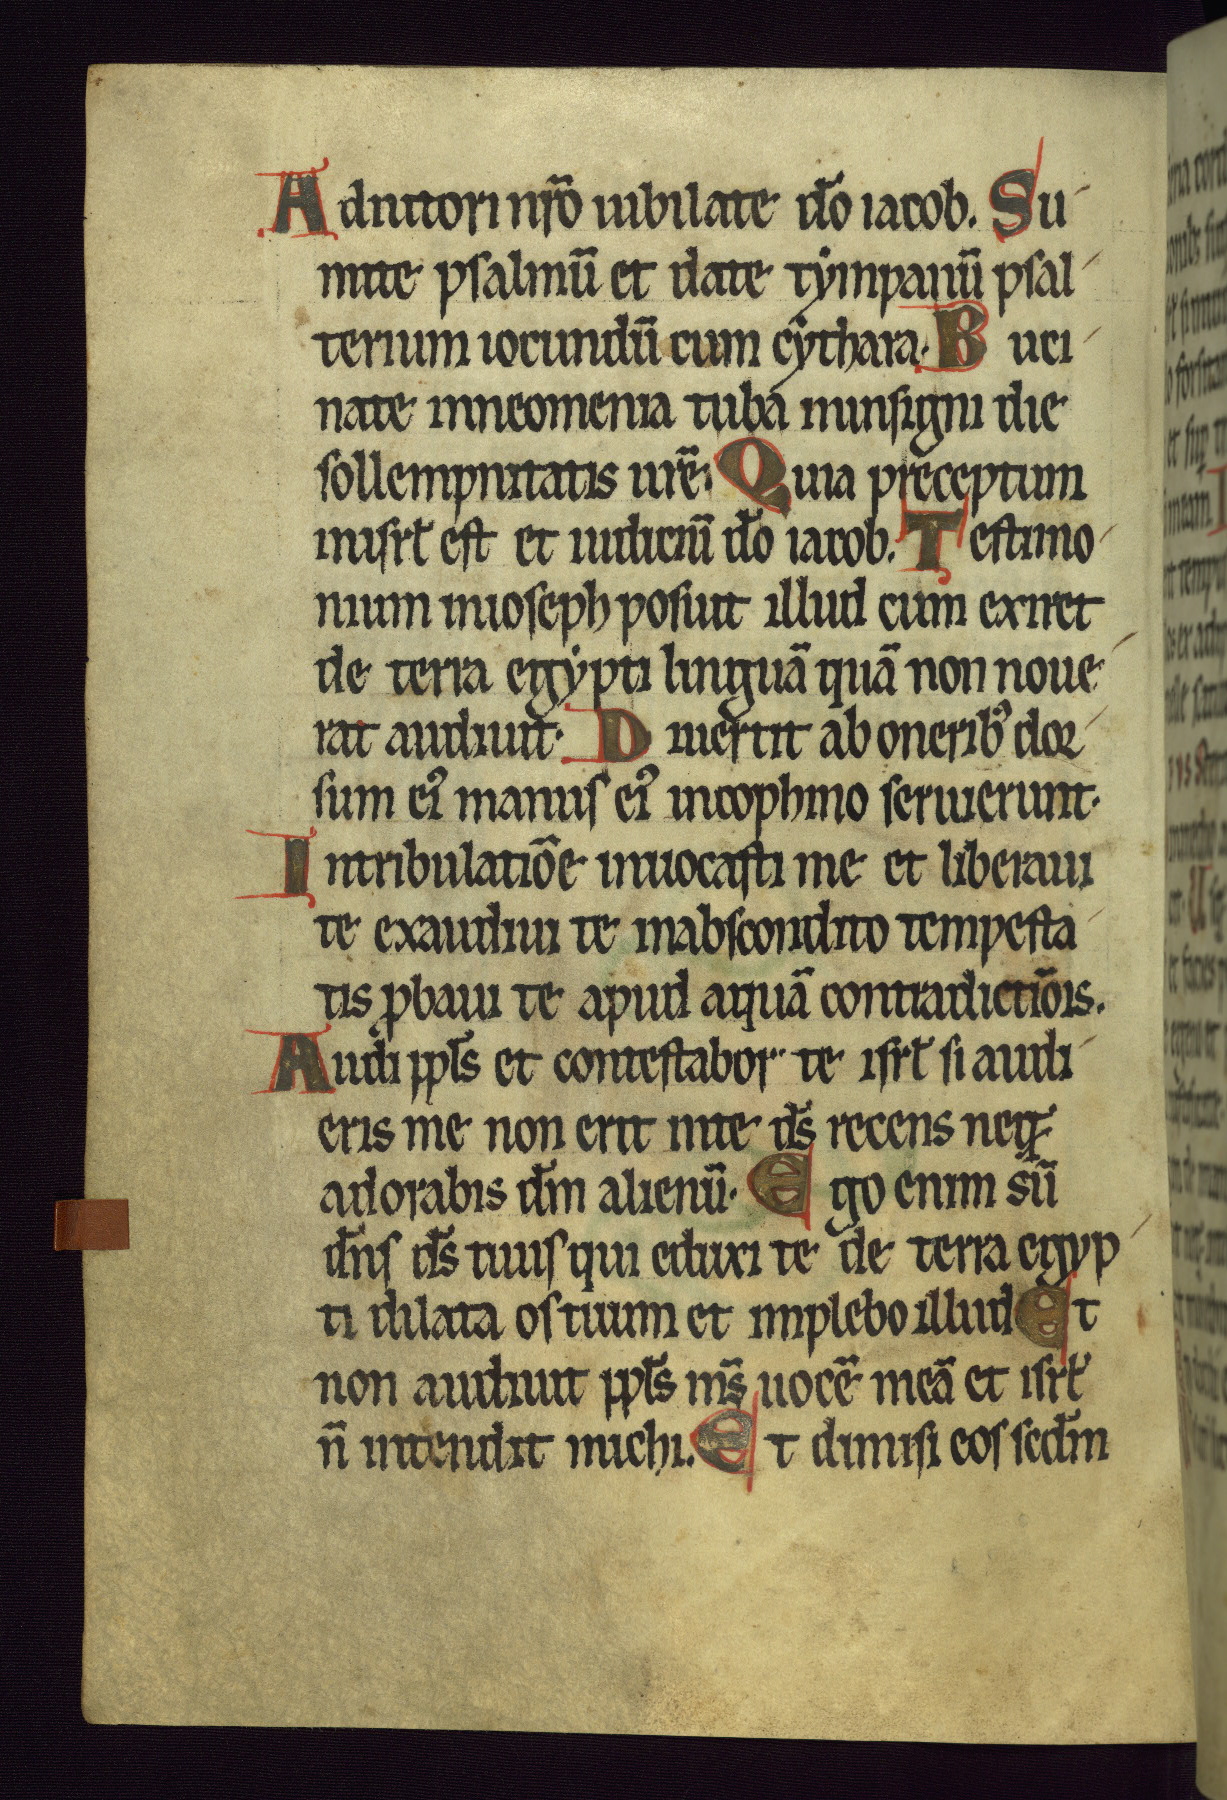 Adiutori nr̄o iubilate d̄o iacob. Su-
mite psalmū et date tẏmpanū psal-
terium iocundū cum cẏthara. Buci-
nate inneomenia tuba ininsigni die
sollempnitatis ur̄e. Quia preceptum
inisrl̄ est et iudiciū d̄o iacob. Testimo-
nium inioseph posuit illud cum exiret
de terra egẏpti linguā quā non noue-
rat audiuit. Diuertit ab onerib᾽ dor-
sum ei᾽ manus ei᾽ incophino seruierunt.
Intribulatiōe inuocasti me et liberaui
te exaudiui te inabscondito tempesta-
tis ꝓbaui te apud aquā contradictiōis.
Audi ppl̄s et contestabor te isrl̄ si audi-
eris me non erit inte d̄s recens neq;
adorabis d̄m alienū. Ego enim sū
dn̄s d̄s tuus qui eduxi te de terra egyp-
ti dilata os tuum et implebo illud Et
non audiuit ppl̄s m̄s uocē meā et isrl̄
n̄ intendit michi. Et dimisi eos scd̄m